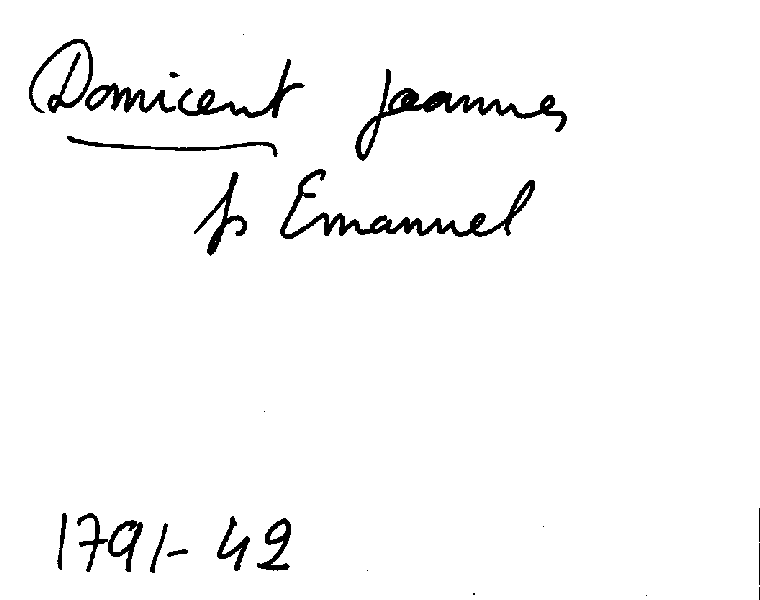 Damicent Joannes
fs Emanuel
1791-42